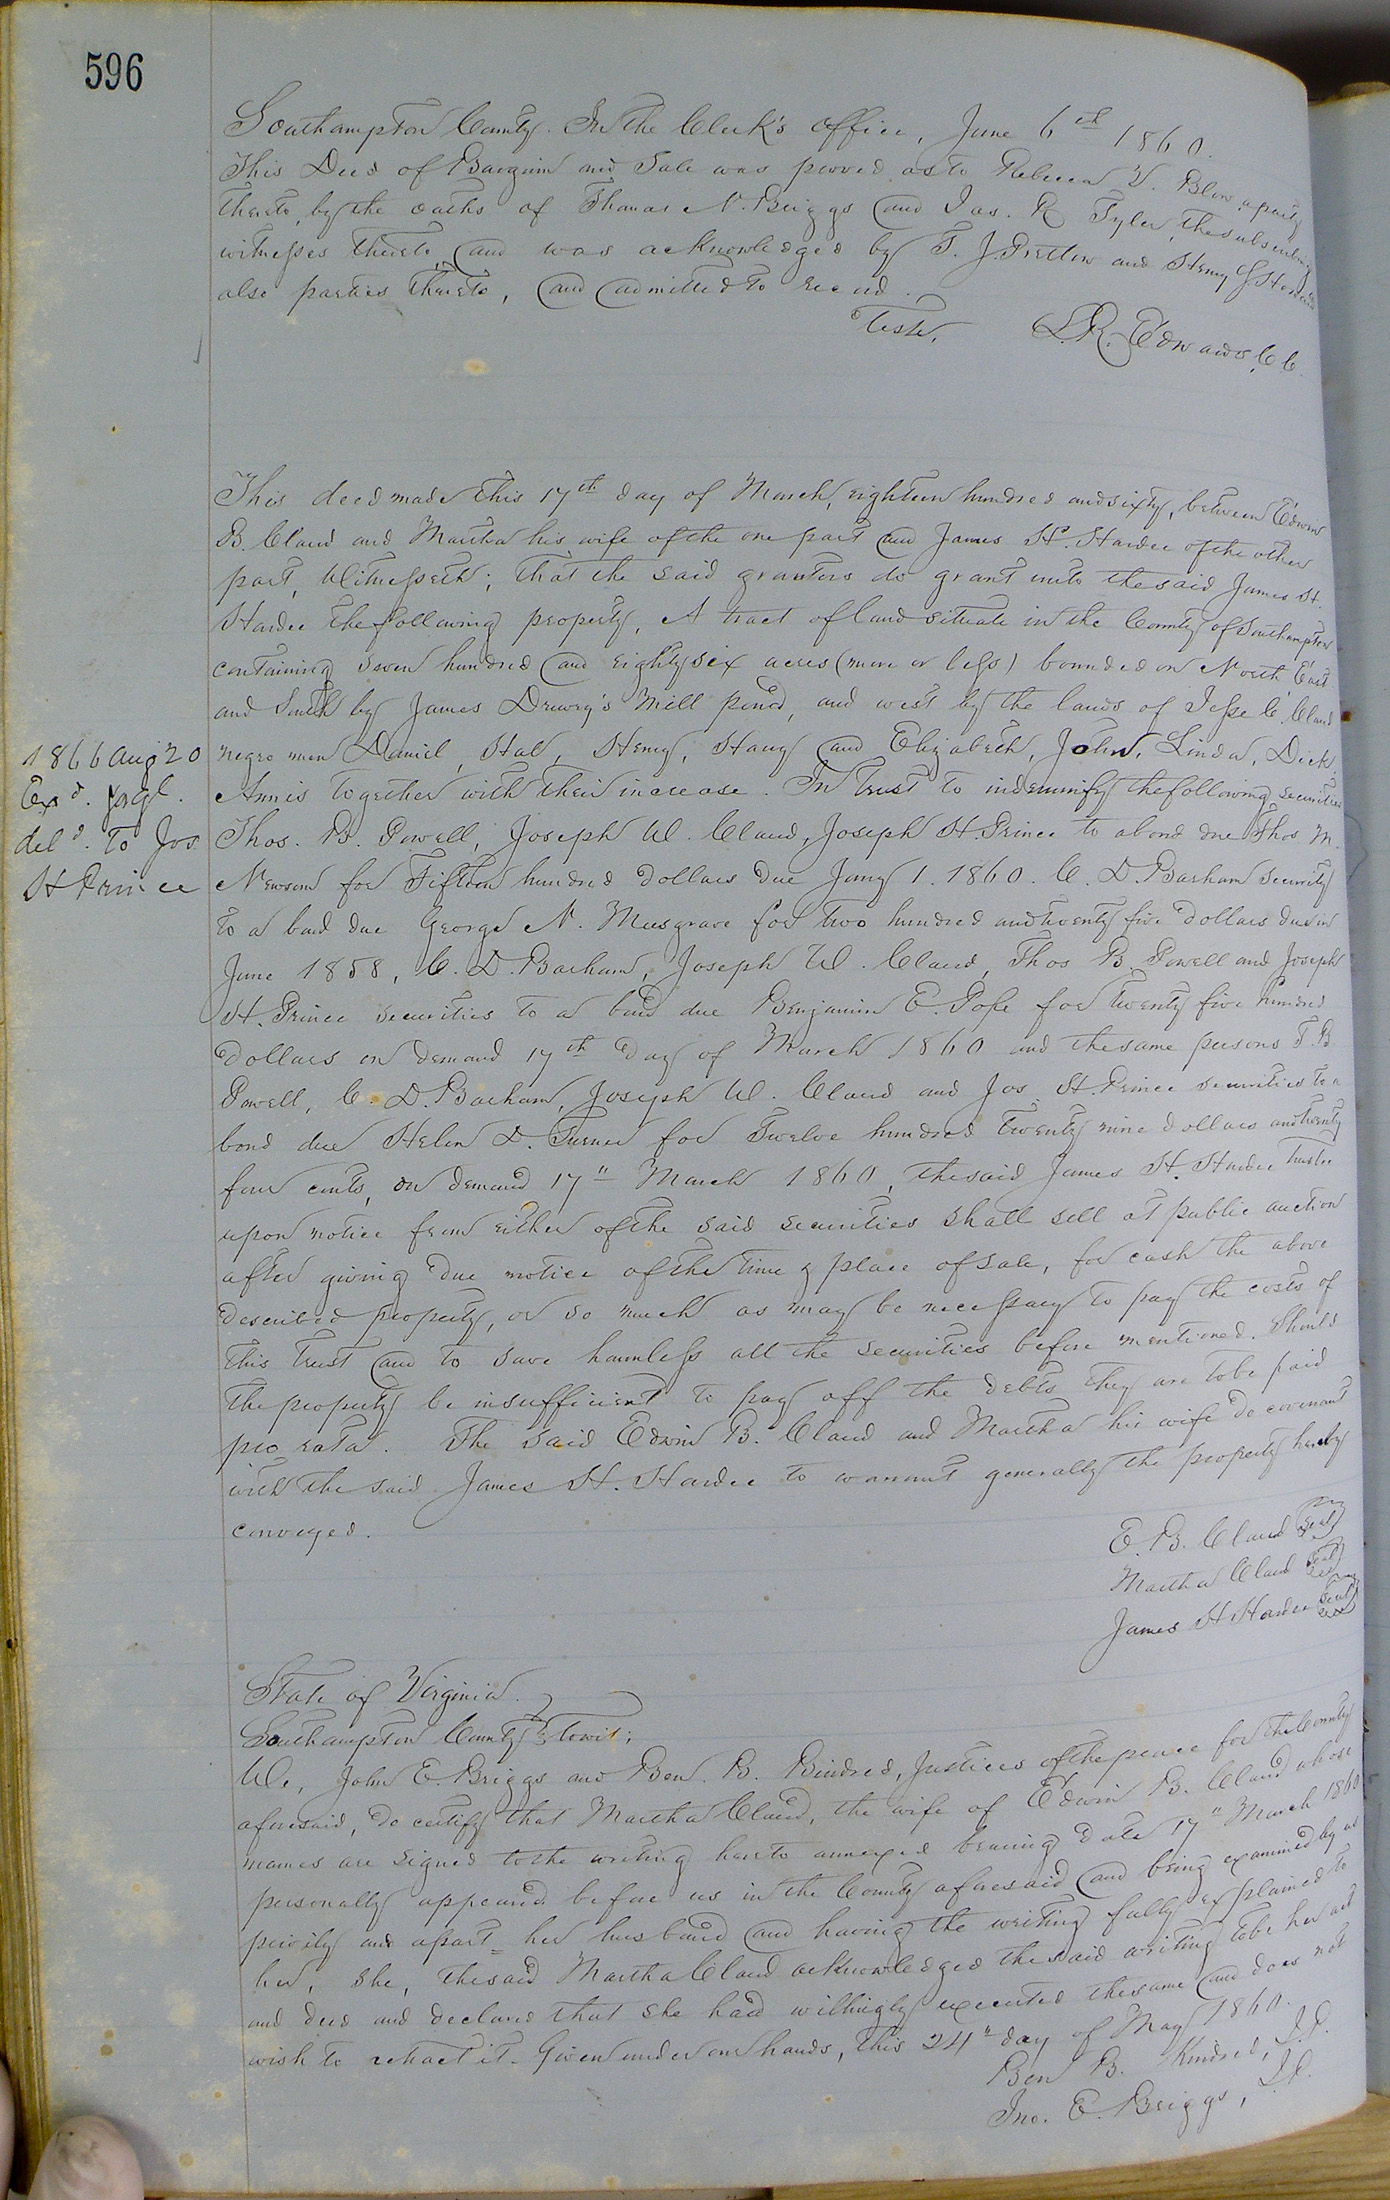 596
Southampton County. In the Clerk's Office, June 6th 1860.
This Deed of Bargain and Sale was proved as to Rebecca V. Blow a party
thereto, by the oaths of Thomas N. Briggs and Jas. R. Tyler, the subscribing
witnesses thereto, and was acknowledged by T. J. Pretlow and Henry
also parties thereto, and admitted to record.
Teste, L.R. Edwards, C.C.
This deed made this 17th day of March, eighteen hundred and sixty, between Edwin
B. Claud and Martha his wife of the one part and James H. Hardee of the other
part, Witnesseth; That the said grantors do grant unto the said James H.
Hardee the following property, A tract of land situate in the County of Southampton
containing seven hundred and eighty six acres (more or less) bounded on North East
and South by James Drewry's Mill pond, and west by the lands of Jesse C. Claud
negro men Daniel, Hal, Henry, and Elizabeth, John, Linda, Dick
Annis together with their increase. In trust to indemnify the following securities
Thos. B. Powell, Joseph W. Claud, Joseph H. Prince to a bond due Thos M.
Newsom for Fifteen hundred Dollars due Jany 1. 1860. C. D. Barham Security
to a bond due George N. Musgrave for two hundred and twenty five Dollars due in
June 1858, C. D. Barham, Joseph W. Claud, Thos B. Powell and Joseph
H. Prince securities to a bond due Benjamin E. Pope for twenty five hundred
Dollars on demand 17th Day of March 1860 and the same persons T. B.
Powell, C. D. Barham, Joseph W. Claud and Jos. H. Prince securities to a
bond due Helen D. Turner for Twelve hundred twenty nine dollars and twenty
four cents, on demand 17th March 1860, the said James H. Hardee Trustee
upon notice from either of the said securities shall sell at public auction
after giving due notice of the time & place of sale, for cash the above
described property, or so much as may be necessary to pay the costs of
this trust and to save harmless all the securities before mentioned. Should
the property be insufficient to pay off the debts they are to be paid
pro rata. The said Edwin B. Claud and Martha his wife do covenant
with the said James H. Hardee to warrant generally the property hereby
conveyed.
E. B. Claud Seal
Martha Claud Seal
James H Hardee Seal
1866 Aug 20
Exd.
deld. to Jos.
H Prince
State of Virginia
Southampton County towit;
We, John E. Briggs and Ben. B. Kindred, Justices of the peace for the County
aforesaid, do certify that Martha Claud, the wife of Edwin B. Claud whose
names are signed to the writing hereto annexed bearing date 17th March 1860
personally appeared before us in the County aforesaid and being examined by us
privily and apart her husband and having the writing fully explained to
her, she, the said Martha Claud acknowledged the said writing to be her act
and deed and declared that she had willingly executed the same and does not
wish to retract it. Given under our hands, this 24th day of May 1860.
Ben B. Kindred, J.P.
Jno. E. Briggs, J.P.